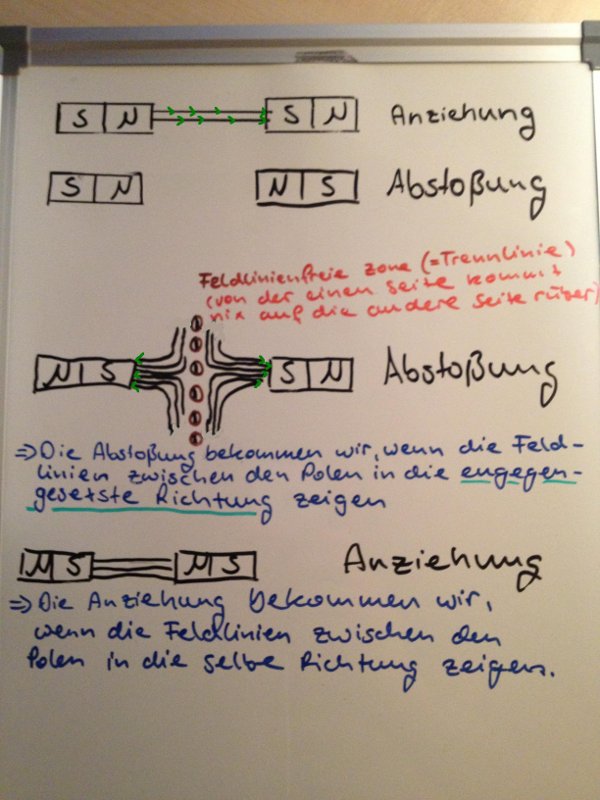 S N S N Anziehung
S N N S Abstoßung
Feldlinienfreie zone (=Trennlinie)
(von der einen Seite kommt
nix auf die andere Seite rüber)
N S S N Abstoßung
=> Die Abstoßung bekommen wir, wenn die Feld-
linien zwischen den Polen in die engegen-
gesetste Richtung zeigen
N S N S Anziehung
=> Die Anziehung bekommen wir,
wenn die Feldlinien zwischen den
Polen in die selbe Richtung zeigen.